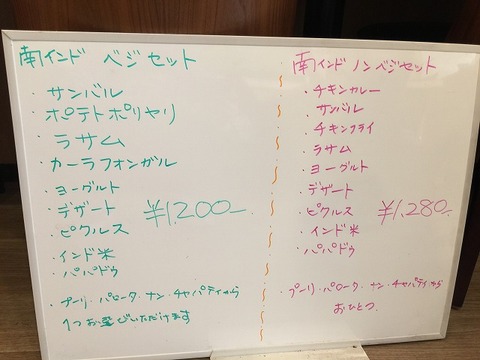 南インド ベジセット
・サンバル
・ポテトポリヤリ
・ラサム
・カーラフォンガル
・ヨーグルト
・デザート
・ピクルス
・インド米
・パパドゥ
¥1200-
・プーリ・パロータ・ナン・チャパティから
1つお選びいただけます
南インド ノンベジセット
・チキンカレー
・サンバル
・チキンフライ
・ラサム
・ヨーグルト
・デザート
・ピクルス
・インド米
・パパドゥ
¥1,280-
・プーリ・パロータ・ナン・チャパティから
おひとつ.